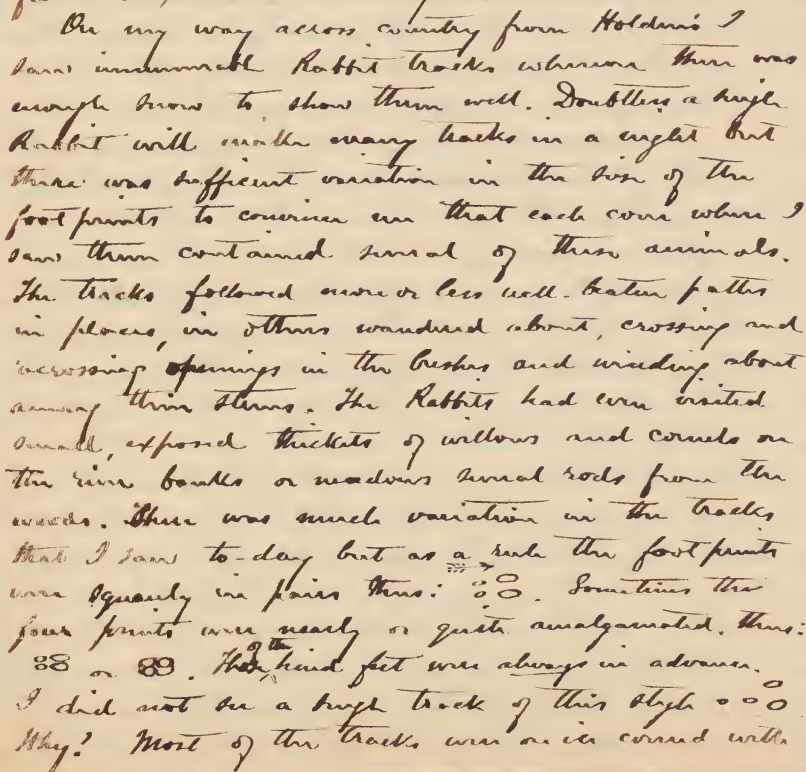 On my way across country from Holden's I
saw innumerable Rabbit tracks wherever there was
enough snow to show them well. Doubtless a single
Rabbit will make many tracks in a night but
there was sufficient variation in the size of the
foot prints to convince me that each cover where I
saw them contained several of these animals.
The tracks followed more or less well-beaten paths
in places, in others wandered about, crossing and
recrossing openings in the bushes and winding about
among their stems. The Rabbits had even visited
small, exposed thickets of willows and cornels on
the river banks or meadows several rods from the
woods. There was much variation in the tracks
that I saw to-day but as a rule the foot prints
were squarely in pairs thus: . Sometimes the
four prints were nearly or quite amalgamated, thus:
or . Those of the hind feet were always in advance.
I did not see a single track of this style
Why? Most of the tracks were on ice covered with